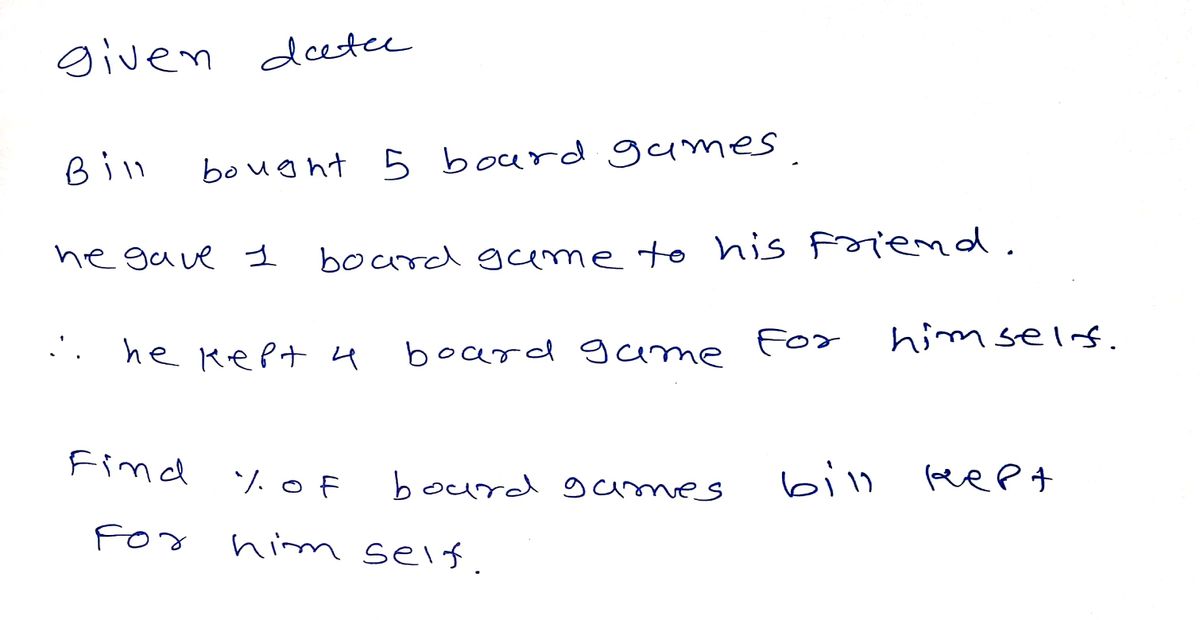 given data
Bill bought 5 board games.
he gave 1 board game to his Friend.
∴ he kept 4 board game For himself.
Find % of board games bill kept
For him self.